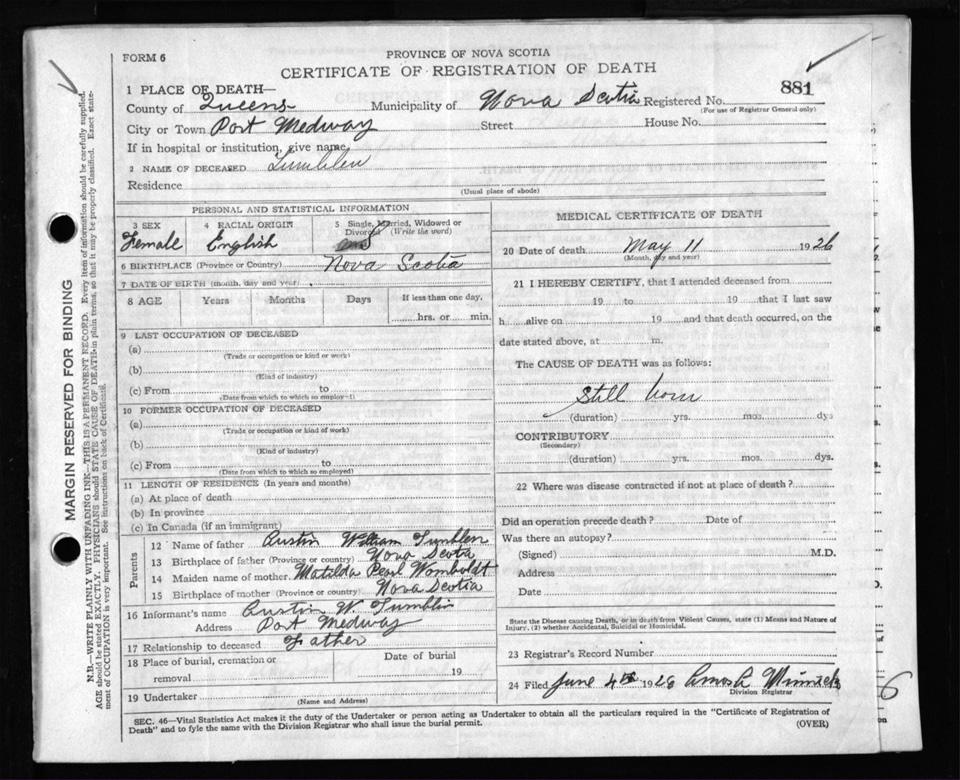 FORM 6
PROVINCE OF NOVA SCOTIA
CERTIFICATE OF REGISTRATION OF DEATH
881
1 PLACE OF DEATH—
County of Queens Municipality of Nova Scotia Registered No.
(For use of Registrar General only)
City or Town Port Medway Street House No.
If in hospital or institution, give name
2 NAME OF DECEASED Tumblen
Residence
(Usual place of abode)
PERSONAL AND STATISTICAL INFORMATION
3 SEX 4 RACIAL ORIGIN 5 Single, Married, Widowed or Divorced (Write the word)
Female English
6 BIRTHPLACE (Province or Country) Nova Scotia
7 DATE OF BIRTH (month, day and year)
8 AGE Years Months Days If less than one day, hrs. or min.
9 LAST OCCUPATION OF DECEASED
(a)
(Trade or occupation or kind or work)
(b)
(Kind of industry)
(c) From to
(Date from which to which so employ—)
10 FORMER OCCUPATION OF DECEASED
(a)
(Trade or occupation or kind of work)
(b)
(Kind of industry)
(c) From to
(Date from which to which so employed)
11 LENGTH OF RESIDENCE (In years and months)
(a) At place of death
(b) In province
(c) In Canada (if an immigrant)
Parents
12 Name of father Austin William Tumblen
13 Birthplace of father (Province or country) Nova Scotia
14 Maiden name of mother Matilda Pearl Womboldt
15 Birthplace of mother (Province or country) Nova Scotia
16 Informant's name Austin W. Tumblin
Address Port Medway
17 Relationship to deceased Father
18 Place of burial, cremation or removal Date of burial 19
19 Undertaker
(Name and Address)
MEDICAL CERTIFICATE OF DEATH
20 Date of death May 11 1926
(Month, day and year)
21 I HEREBY CERTIFY, that I attended deceased from
19 to 19 that I last saw
h alive on 19 and that death occurred, on the
date stated above, at m.
The CAUSE OF DEATH was as follows:
Still born
(duration) yrs. mos. dys
CONTRIBUTORY
(Secondary)
(duration) yrs. mos. dys.
22 Where was disease contracted if not at place of death?
Did an operation precede death? Date of
Was there an autopsy?
(Signed) M.D.
Address
Date
State the Disease causing Death, or in death from Violent Causes, state (1) Means and Nature of
Injury, (2) whether Accidental, Suicidal or Homicidal.
23 Registrar's Record Number
24 Filed June 4th 1926
Division Registrar
SEC. 46—Vital Statistics Act makes it the duty of the Undertaker or person acting as Undertaker to obtain all the particulars required in the "Certificate of Registration of
Death" and to fyle the same with the Division Registrar who shall issue the burial permit.
(OVER)
MARGIN RESERVED FOR BINDING
N.B.—WRITE PLAINLY WITH UNFADING INK—THIS IS A PERMANENT RECORD. Every item of information should be carefully supplied.
AGE should be stated EXACTLY. PHYSICIANS should STATE CAUSE OF DEATH in plain terms, so that it may be properly classified. Exact state-
ment of OCCUPATION is very important. See instructions on back of Certificate.
6